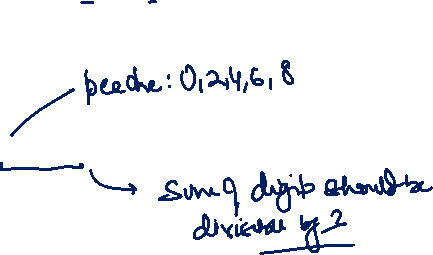 peeche: 0,2,4,6,8
Sum of digits should be
divisible by 2